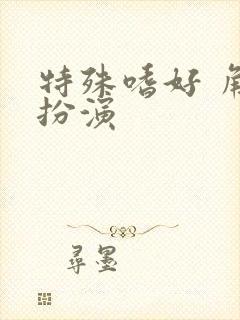 特殊嗜好 角
扮演
尋墨